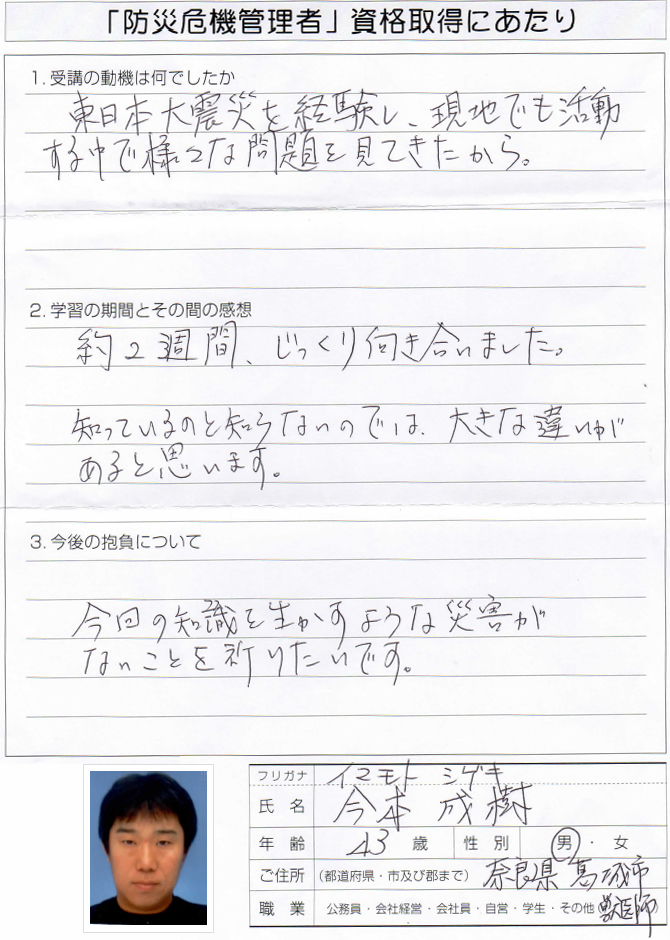 「防災危機管理者」資格取得にあたり
1. 受講の動機は何でしたか
東日本大震災を経験し、現地でも活動
する中で様々な問題を見てきたから。
2. 学習の期間とその間の感想
約2週間、じっくり向き合いました。
知っているのと知らないのでは、大きな違いが
あると思います。
3. 今後の抱負について
今回の知識を生かすような災害が
ないことを祈りたいです。
フリガナ イマモト シゲキ
氏 名 今本 成樹
年 齢 43 歳 性 別 男 ・ 女
ご住所 (都道府県・市及び郡まで) 奈良県 葛城市
職 業 公務員・会社経営・会社員・自営・学生・その他 (獣医師)